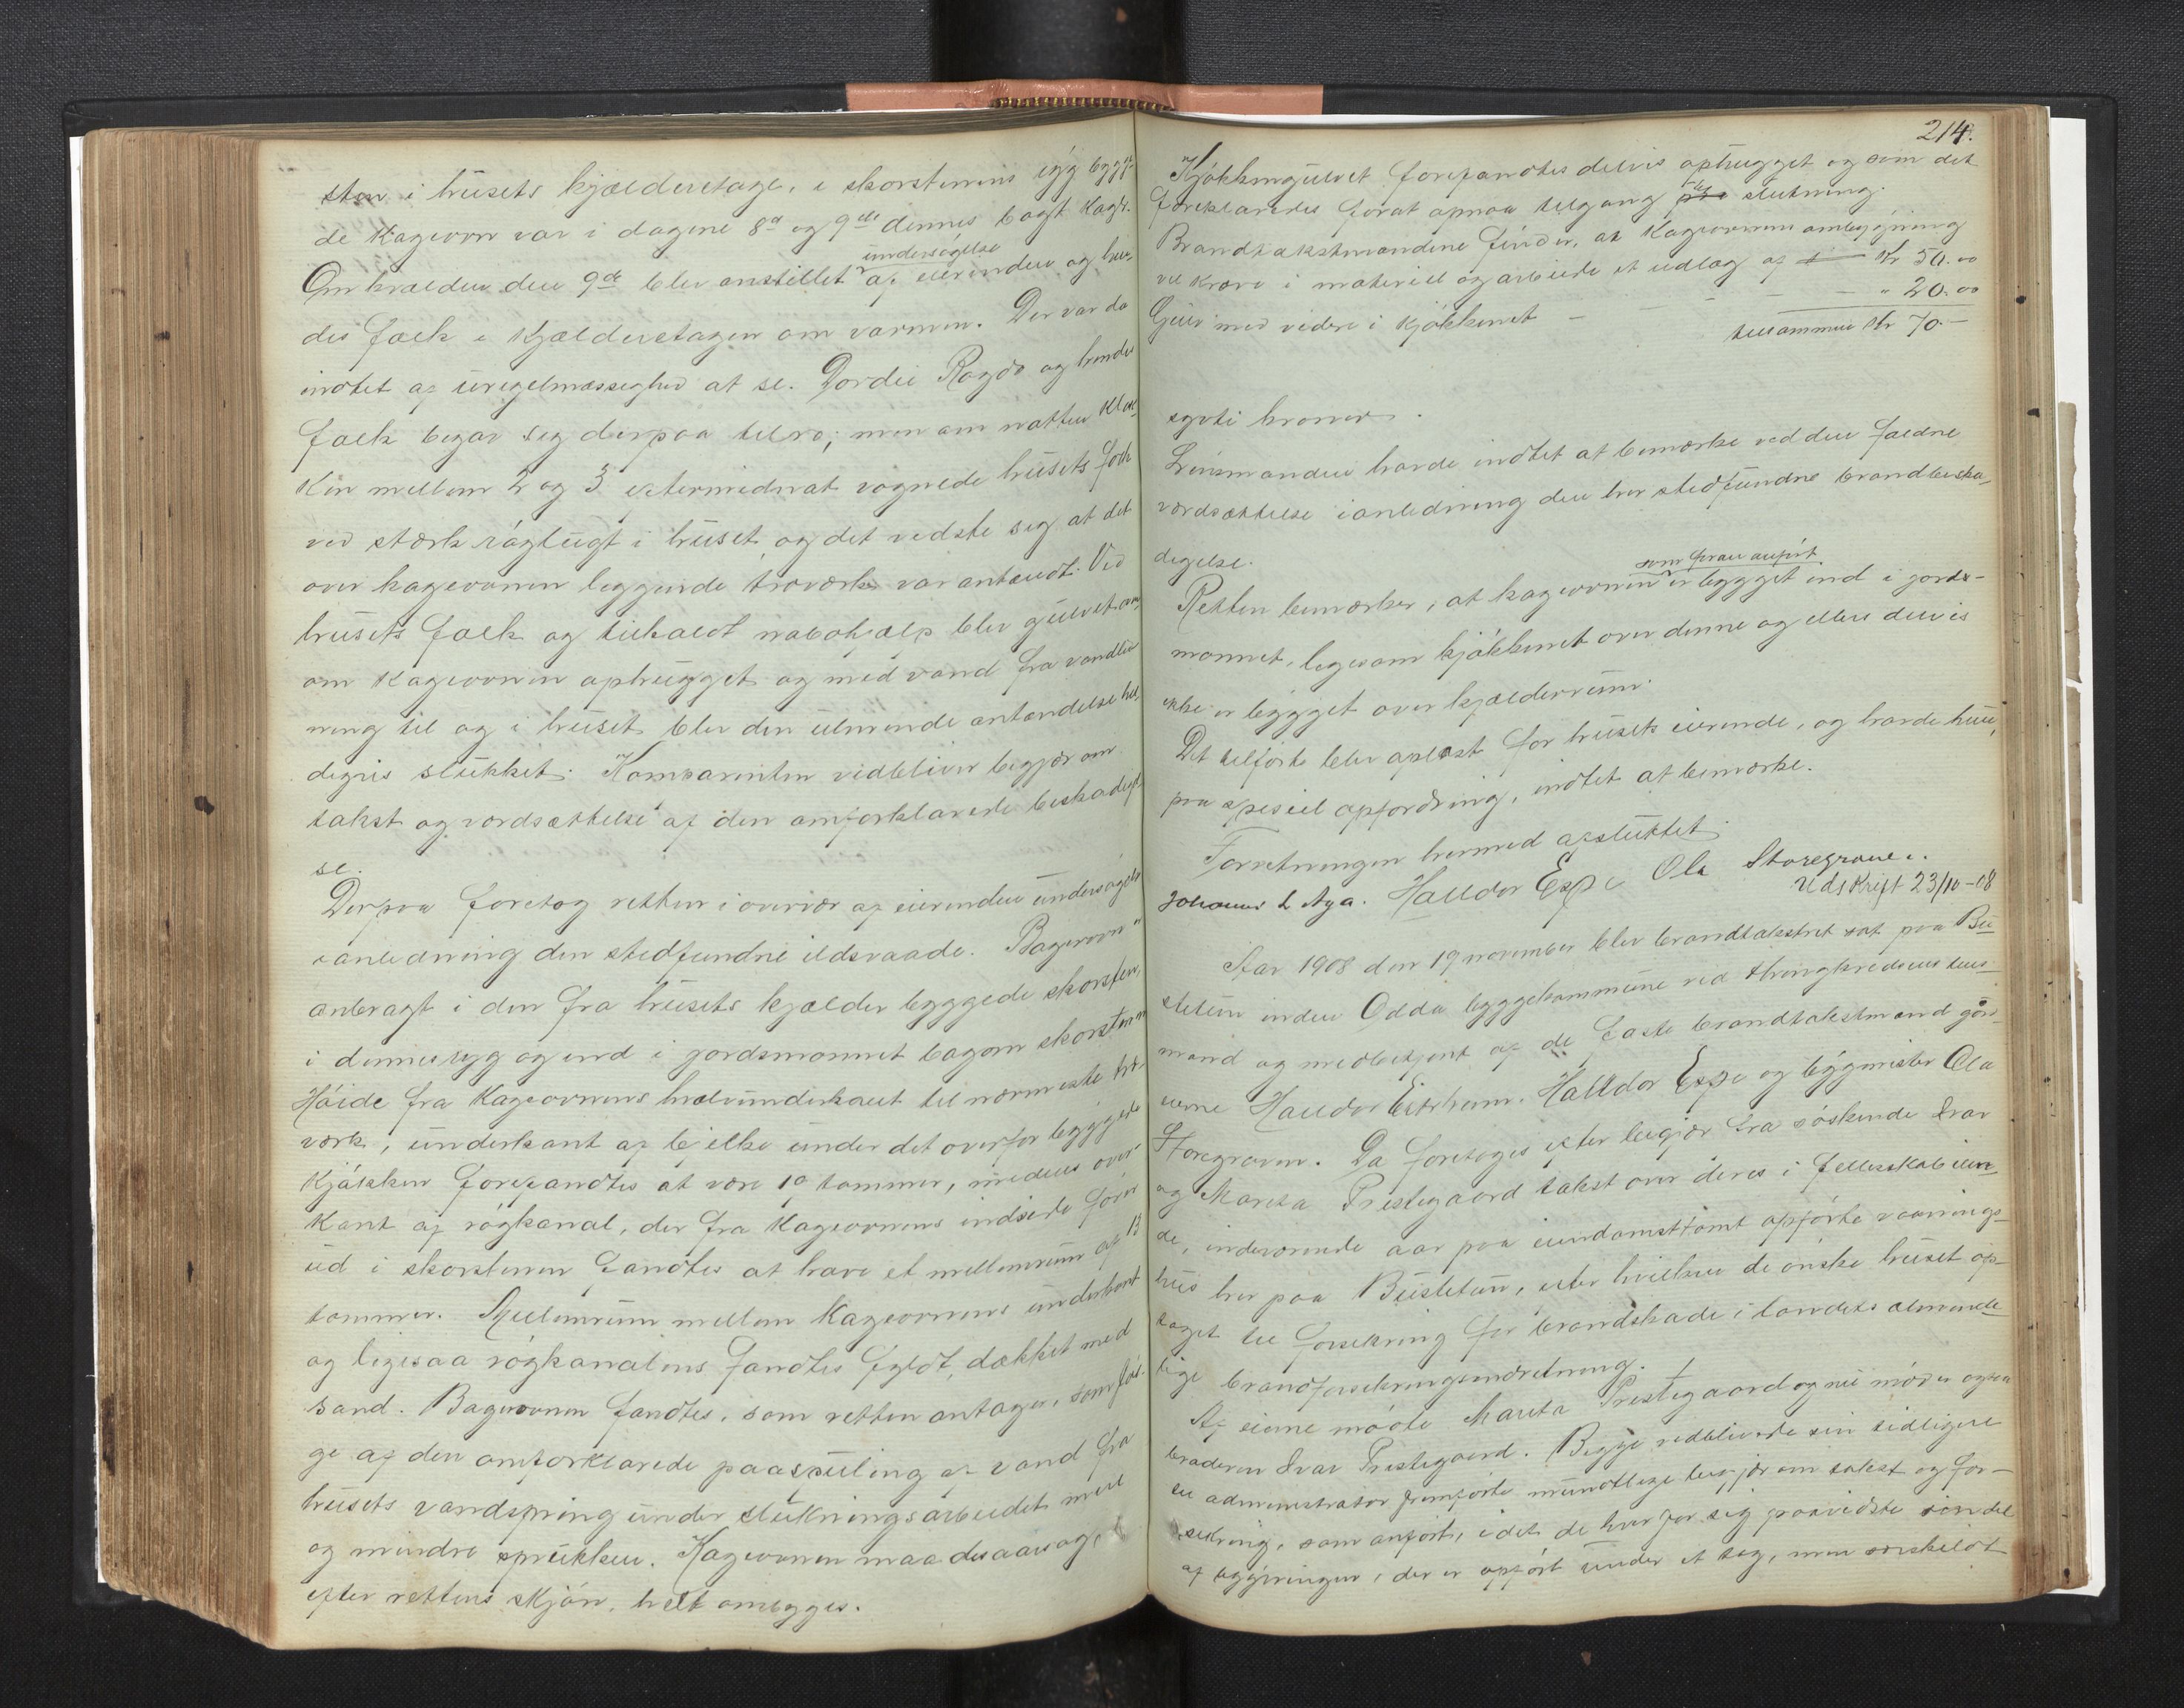 sten i husets kjælderetage, i skorstenens ryg bygge-
de kagrovn var i dagene 8de og 9de dennes bagt kage.
Om kvælden den 9de blev anstillet undersøgelse af eierinden og hen-
des folk i kjælderetagen om varmen. Der var da
indtet af uregelmæssighed at se. Dordei Ragde og hendes
folk begav seg derpaa tilro; men om natten klok-
ken mellem 2 og 3 eftermidnat vognede husets folk
ved stærk røglugt i huset og det vedste seg at det
over kagrovnen liggende træværk var antændt. Ved
husets folk og tilkaldt nabohjælp blev gulvet om-
om kagrovnen ophugget og med vand fra vandled-
ning til og i huset blev den ulmende antændelse hel-
digvis slukket. Komparenten vedbliver begjær om
takst og værdsættelse af den omforklarede beskadigel-
se.
Derpaa foretog retten i overvær af eierinden undersøgelse
ianledning den stedfundne ildsvaade. Bagerovn
anbragt i den fra husets kjælder byggede skorsten,
i dennes ryg og ind i jordsmonnet bagom skorstenen
Høide fra kagrovnens hvælvunderkant til nærmeste træ-
værk, underkant af bjelke under det overfor byggede
kjøkken forefandtes at være 19 tommer, medens over-
kant af røgkanal, der fra kagrovnens indside fører
ud i skorstenen fandtes at have et mellemrum af 13
tommer. Mellemrum mellem kagrovnens underkant
og ligesaa røgkanalens fandtes fyldt, dækket med
sand. Bagerovnen fandtes, som retten antager, som føl-
ge af den omforklarede paaspuling af vand fra
husets vandspring under slukningsarbeidet mere
og mindre sprukken. Kagrovnen maa desaarsag,
efter rettens skjøn, helt omlegges.
214.
Kjøkkengulvet forefandtes delvis ophugget og som det
forklaredes forat opnaa tilgang til slukning.
Brandtakstmændene finder, at kagrovnens ombygning
vil kræve i materiel og arbeide et udlæg af Kr 50.00
Gulv med videre i kjøkkenet - - - - " 20.00
tilsammen Kr 70.-
sytti kroner.
Lensmanden havde indtet at bemærke ved den faldne
værdsættelse ianledning den her stedfundne brandbeska-
digelse.
Retten bemærker, at kagrovnen som foran anført er bygget ind i jords-
monnet, ligesom kjøkkenet over denne og ellers delvis
ikke er bygget over kjælderrum.
Det tilførte blev oplæst for husets eierinde, og havde hun,
paa speciel opfordring, indtet at bemærke.
Forretningen hermed afsluttet.
Johannes L Aga. Halldor Espe Ola Storegraven.
Udskrift 23/10-08
Aar 1908 den 19 november blev brandtakstret sat paa Bu
stetun inden Odda byggekommune ved thingkredsens lens-
mand og medbetjent af de faste brandtakstmænd gaar-
eierne Halldor Eitrheim. Halldor Espe og bygmester Ola
Storegraven. Da foretoges efter begjær fra søskende Ivar
og Marita Prestegaard takst over deres i fellesskab eien-
de, indeværende aar paa eiendomstomt opførte vaanings-
hus her paa Bustetun, efter hvilken de ønske huset op-
taget til forsikring for brandskade i landets almindel-
lige brandforsikringsindretning.
Af eierne mødte Marita Prestegaard og nu møder ogsaa
broderen Ivar Prestegaard. Begge vedblivede sin tidligere
til administrator fremførte mundtlige begjær om takst og for-
sikring, som anført, idet de hver for sig paaviste sin del
af bygningen, der er opført under et tag, men særskildt